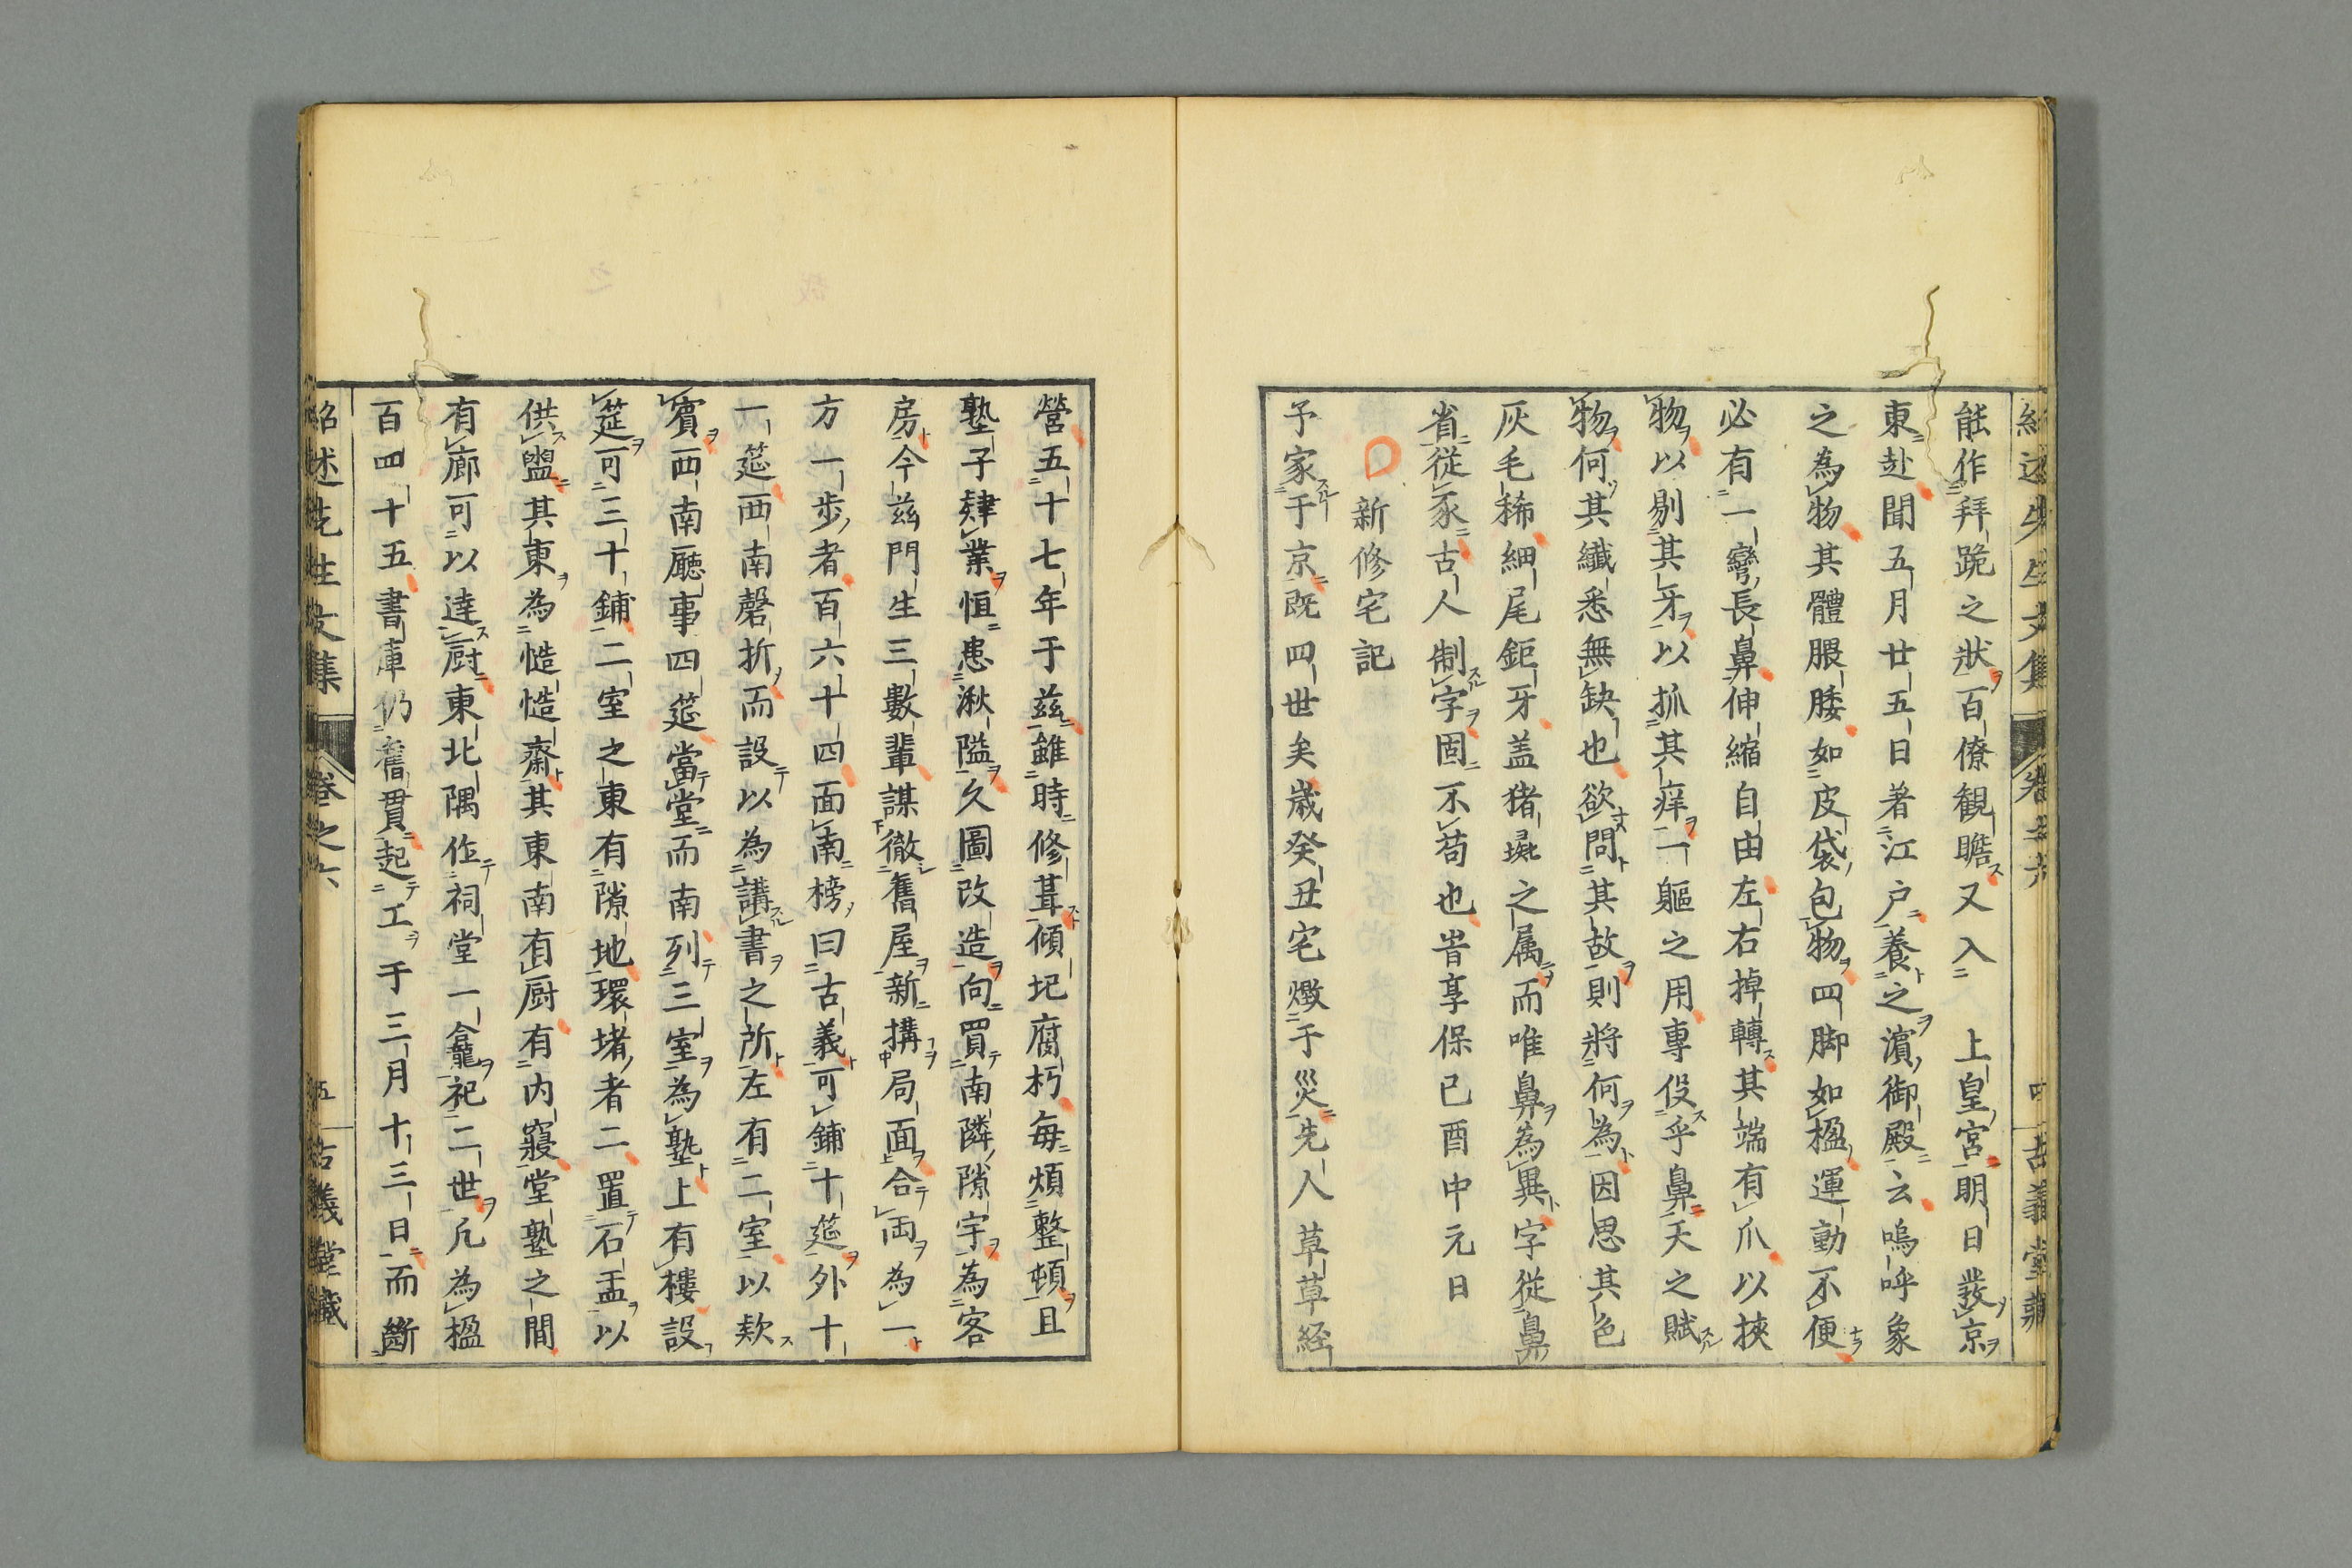 能作拜跪之狀百僚観瞻又入　上皇宮明日發京
東赴聞五月廿五日著江戸養之濵御殿云嗚呼象
之為物其體服腰如皮袋包物四脚如楹運動不便
必有一彎長鼻伸縮自由左右掉轉其端有爪以挾
物以剔其牙以抓其痒一軀之用專役乎鼻天之賦
物何其纖悉無缺也欲問其故則將何為因思其色
灰毛稀細尾鉅牙盖猪之属而唯鼻為異字從鼻
省從豕古人制字固不苟也旹享保己酉中元日
新修宅記
予家于京既四世矣歳癸丑宅燬于災先人草草経
營五十七年于兹雖時修葺傾圮腐朽毎煩整頓且
塾子肄業恒患湫隘久圖改造向買南隣隙宇為客
房今兹門生三數輩謀徹舊屋新搆局面合両為一
方一步者百六十四面南榜曰古義可鋪十筵外十
一筵西南磬折而設以為講書之所左有二室以欵
賓西南廳事四筵當堂而南列三室為塾上有樓設
筵可三十鋪二室之東有隙地環堵者二置石盂以
供盥其東為慥慥齋其東南有厨有内寢堂塾之間
有廊可以達厨東北隅作祠堂一龕祀二世凡為楹
百四十五書庫仍舊貫起工于三月十三日而斷
紹述先生文集　卷之六　五　古義堂藏